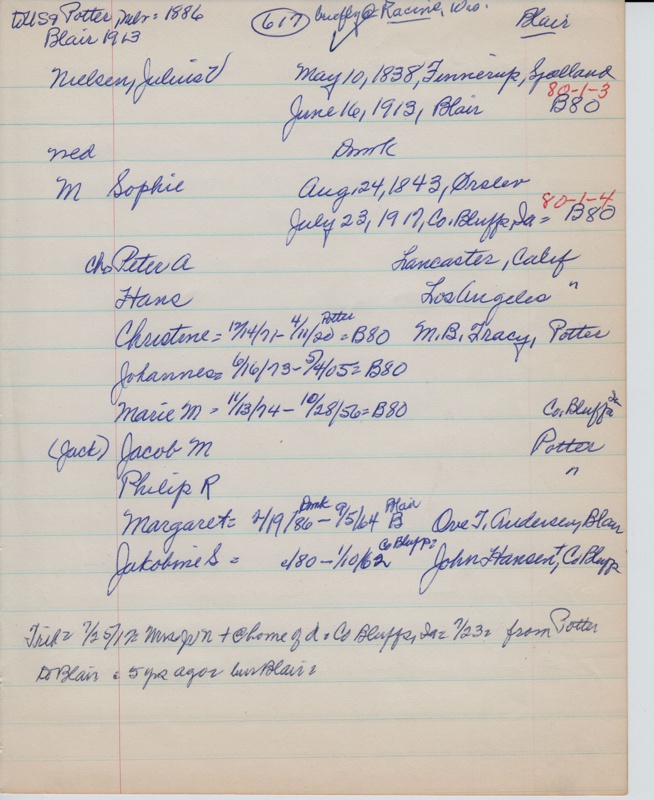 to USA Potter, Nebr = 1886 (617) briefly @ Racine, Wis. Blair
Blair 1913
Nielsen, Julius V May 10, 1838, Finnerup, Sjælland
80-1-3
June 16, 1913, Blair B80
med Dmk
M Sophie Aug. 24, 1843, Ørslev
80-1-4
July 23, 1917, Co. Bluffs, Ia = B80
ch. Peter A Lancaster, Calif
Hans Los Angeles "
Potter
Christine = 12/14/71 - 4/11/20 = B80 M. B. Tracy, Potter
Johannes = 6/16/73 - 5/4/05 = B80
Marie M = 11/13/74 - 10/28/56 = B80 Co. Bluffs Ia
(Jack) Jacob M Potter
Philip R "
Dmk Blair
Margaret = 2/19/86 - 9/5/64 B Ove T. Andersen, Blair
Co Bluffs =
Jakobine S = /80 - 1/10/62 John Hansen +, Co Bluffs
Trib = 7/25/17 = Mrs JN + @ home of d. Co Bluffs, Ia = 7/23 = from Potter
to Blair = 5 yrs ago = bur Blair =